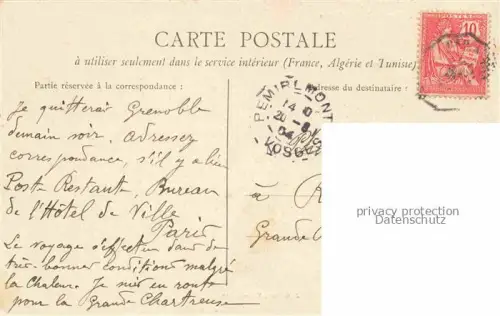 CARTE POSTALE
à utiliser seulement dans le service intérieur (France, Algérie et Tunisie)
Partie réservée à la correspondance :
Adresse du destinataire :
POSTES
10
REMIREMONT
14
20 -8
04
VOSGES
Je quitterai Grenoble
demain soir. Adressez
correspondance, s'il y a lieu
Poste Restant, Bureau
de l'Hôtel de Ville
Paris
Le voyage s'effectue dans de
très bonnes conditions malgré
la chaleur. Je suis en route
pour la Grande Chartreuse
à R
Grande
privacy protection
Datenschutz